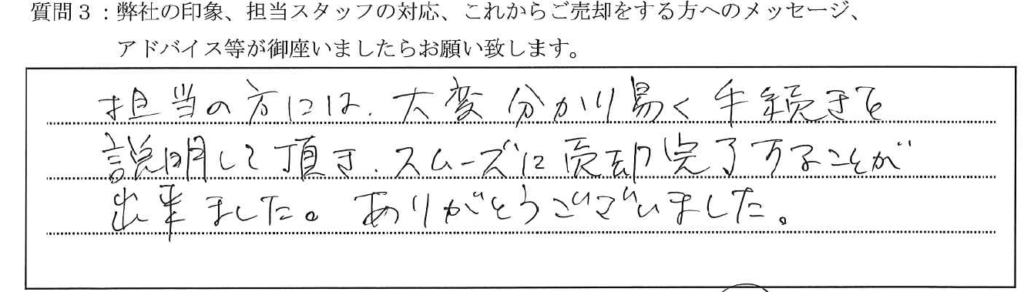 質問3：弊社の印象、担当スタッフの対応、これからご売却をする方へのメッセージ、
アドバイス等が御座いましたらお願い致します。
担当の方には、大変分かり易く手続きを
説明して頂き、スムーズに売却完了することが
出来ました。ありがとうございました。